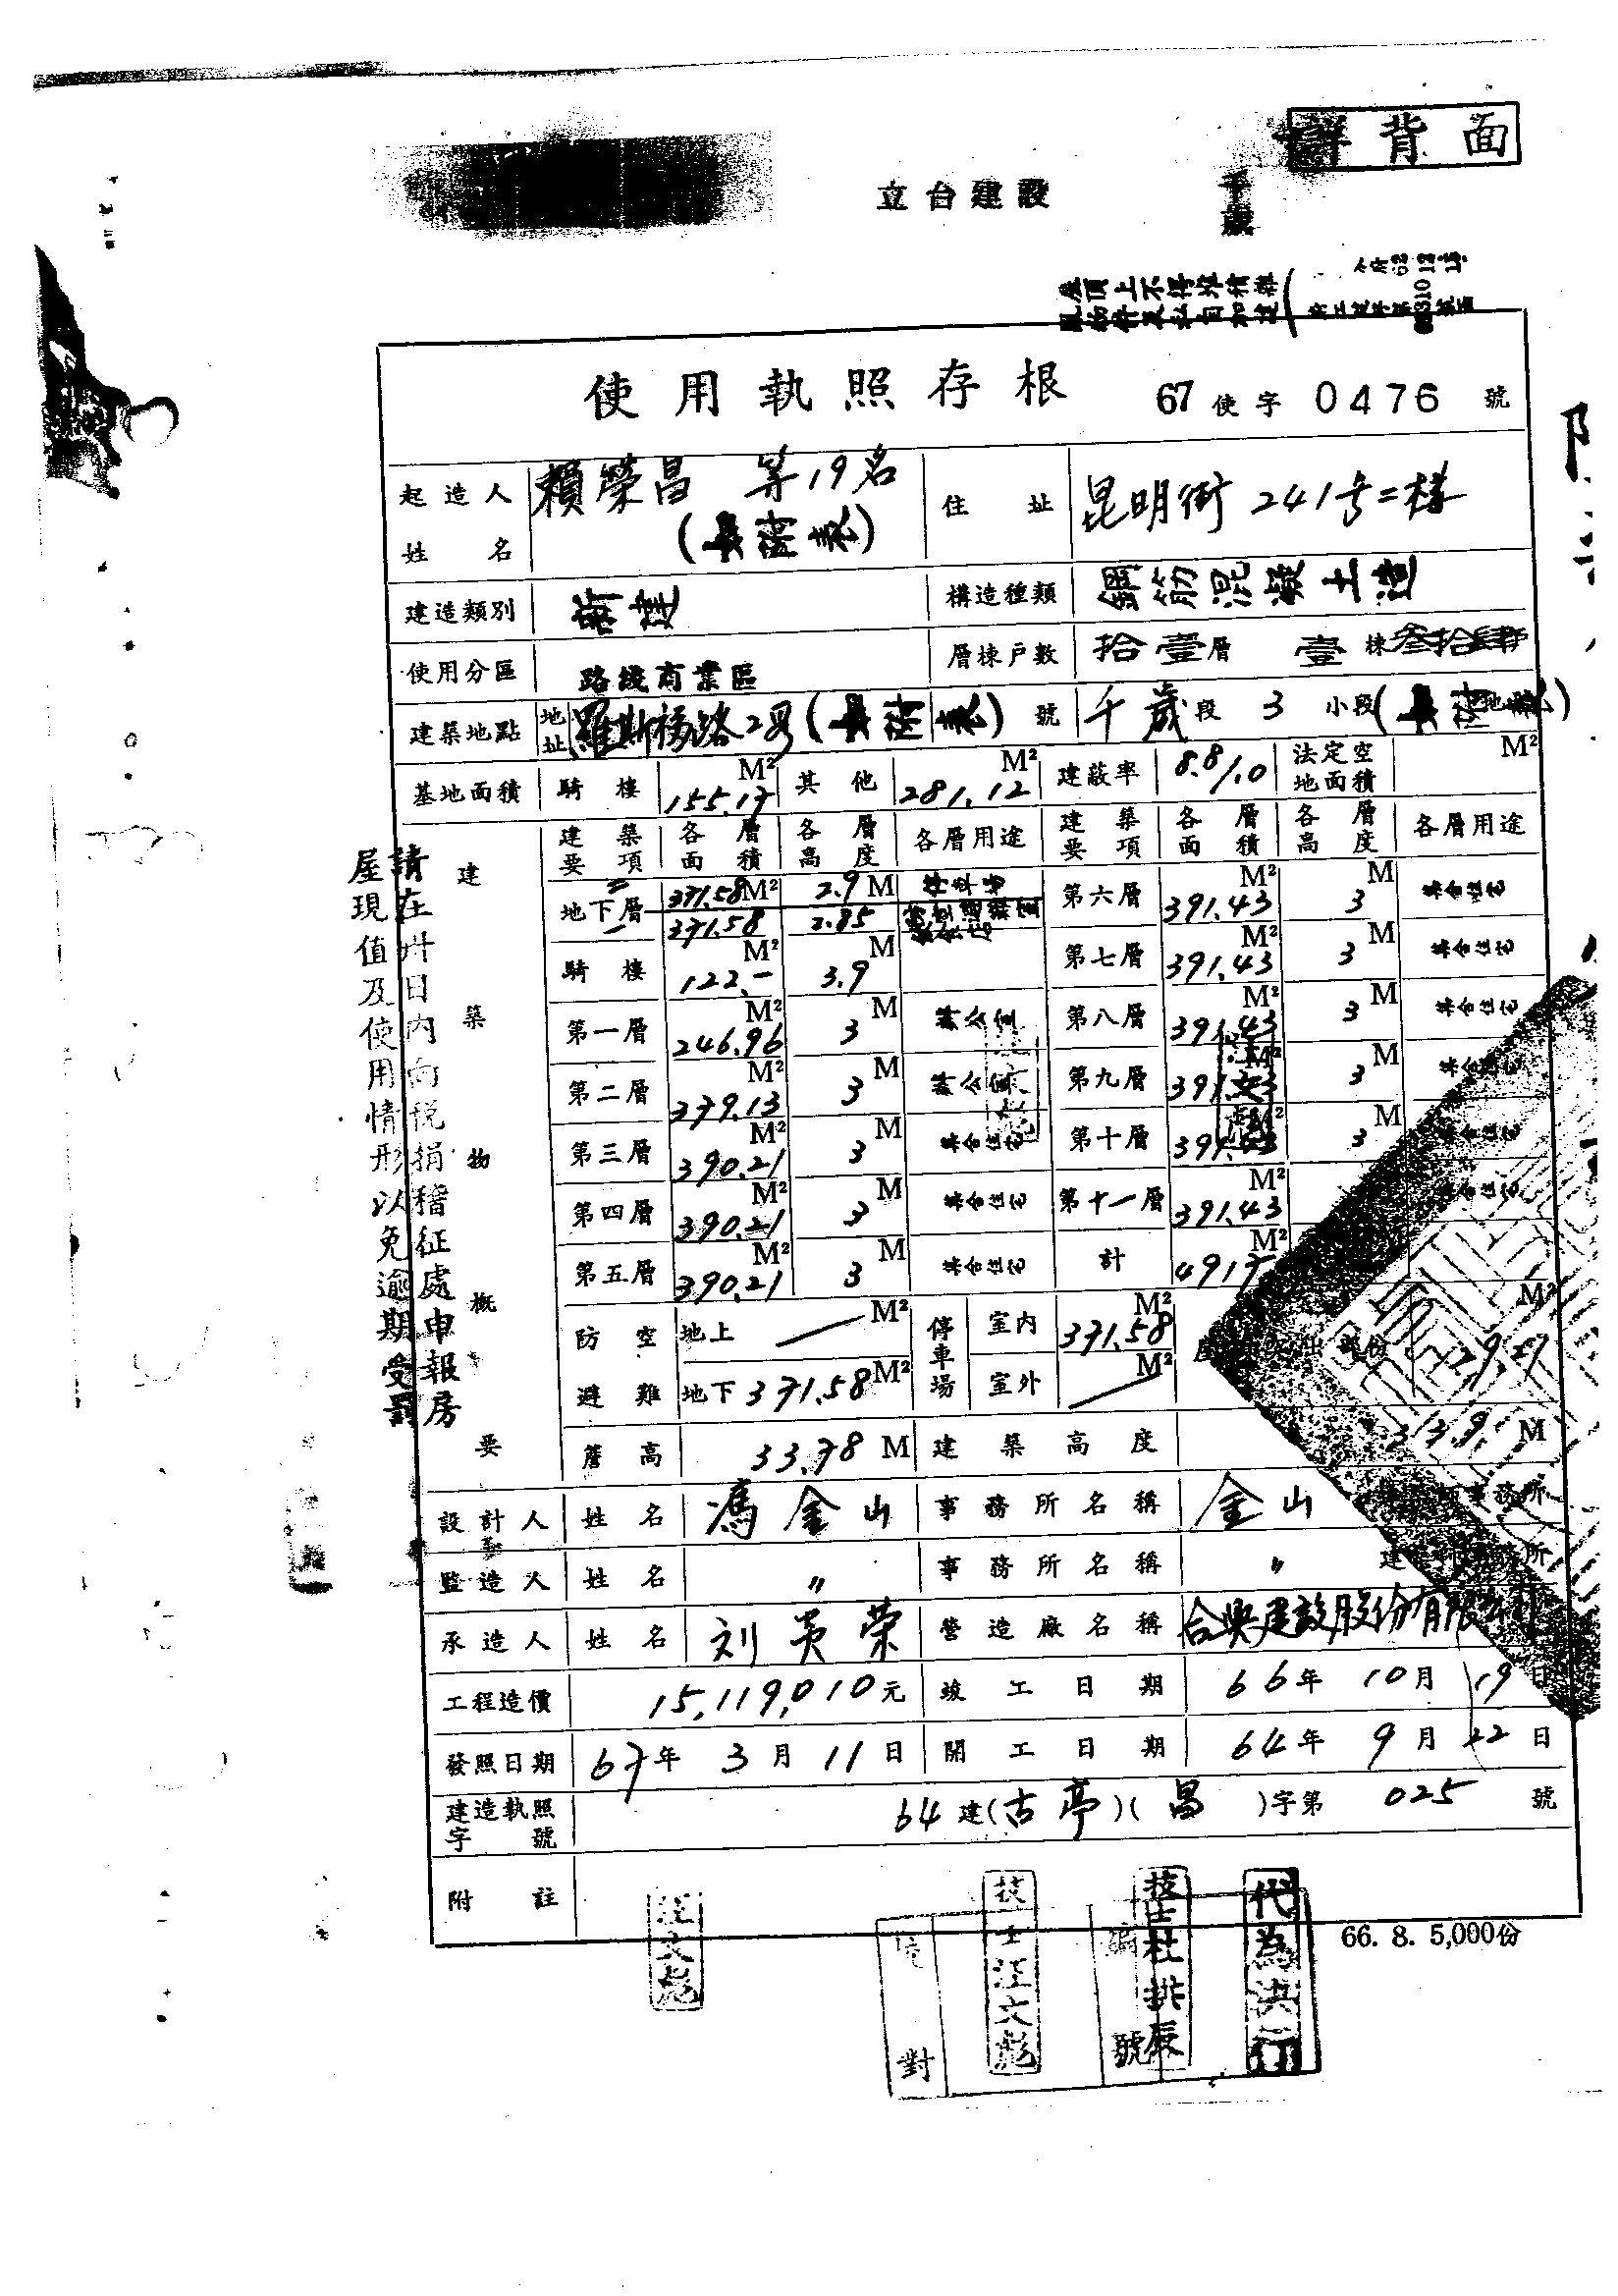 詳背面
立台建設
千歲
屋頂上不得堆積雜
使用執照存根 67使字0476號
起造人姓名 賴榮昌 等19名 住址 昆明街241号二樓
建造類別 新建 構造種類 鋼筋混凝土造
使用分區 路線商業區 層棟戶數 拾壹層 壹棟叁拾肆戶
建築地點 地址 羅斯福路2段 號 千歲段3小段
基地面積 騎樓 155.17 M² 其他 281.12 M² 建蔽率 8.8/10 法定空地面積 M²
建築物概要
建築要項 各層面積 各層高度 各層用途 建築要項 各層面積 各層高度 各層用途
地下層 二 371.58 M² 2.9 M 第六層 391.43 M² 3 M 集合住宅
一 371.58 2.85
騎樓 122.- M² 3.9 M 第七層 391.43 M² 3 M 集合住宅
第一層 246.96 M² 3 M 第八層 391.43 M² 3 M 集合住宅
第二層 379.13 M² 3 M 第九層 391.43 M² 3 M 集合住宅
第三層 390.21 M² 3 M 集合住宅 第十層 391.43 M² 3 M 集合住宅
第四層 390.21 M² 3 M 集合住宅 第十一層 391.43 M² 集合住宅
第五層 390.21 M² 3 M 集合住宅 計 4917 M²
防空避難 地上 M² 停車場 室內 371.58 M² M²
地下 371.58 M² 室外 M²
簷高 33.78 M 建築高度 M
設計人 姓名 馮金山 事務所名稱 金山 事務所
監造人 姓名 〃 事務所名稱 〃 建 事務所
承造人 姓名 刘英荣 營造廠名稱 合興建設股份有限公司
工程造價 15,119,010元 竣工日期 66年10月19日
發照日期 67年3月11日 開工日期 64年9月22日
建造執照字號 64建(古亭)(昌)字第025號
附註
66. 8. 5,000份
請在卅日內向稅捐稽征處申報房
屋現值及使用情形以免逾期受罰
江文彪
技士江文彪
技士杜排辰
代為決行
對
號